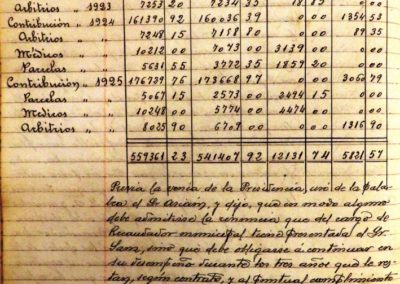 Arbitrios " 1923 7253 20 7234 35 18 15 0 00
Contribución " 1924 161390 92 160036 39 0 00 1354 53
Arbitrios " " 7248 15 7158 80 0 00 89 35
Médicos " " 10212 00 7073 00 3139 00 0 00
Parcelas " " 5631 55 3772 35 1859 20 0 00
Contribución " 1925 176739 76 173668 97 0 00 3060 79
Parcelas " " 5067 15 2573 00 2494 15 0 00
Medicos " " 10248 00 5774 00 4474 00 0 00
Arbitrios " " 8025 90 6709 00 0 00 1316 90
559361 23 541407 92 12131 74 5821 57
Previa la venia de la Presidencia, usó de la pala-
bra el Sr. y dijo, que en modo alguno
debe admitirse la renuncia que del cargo de
Recaudador municipal tiene presentada el Sr.
sino que debe obligarse á continuar en
su desempeño durante los tres años que le res-
tan, según contrato, y al puntual cumplimiento